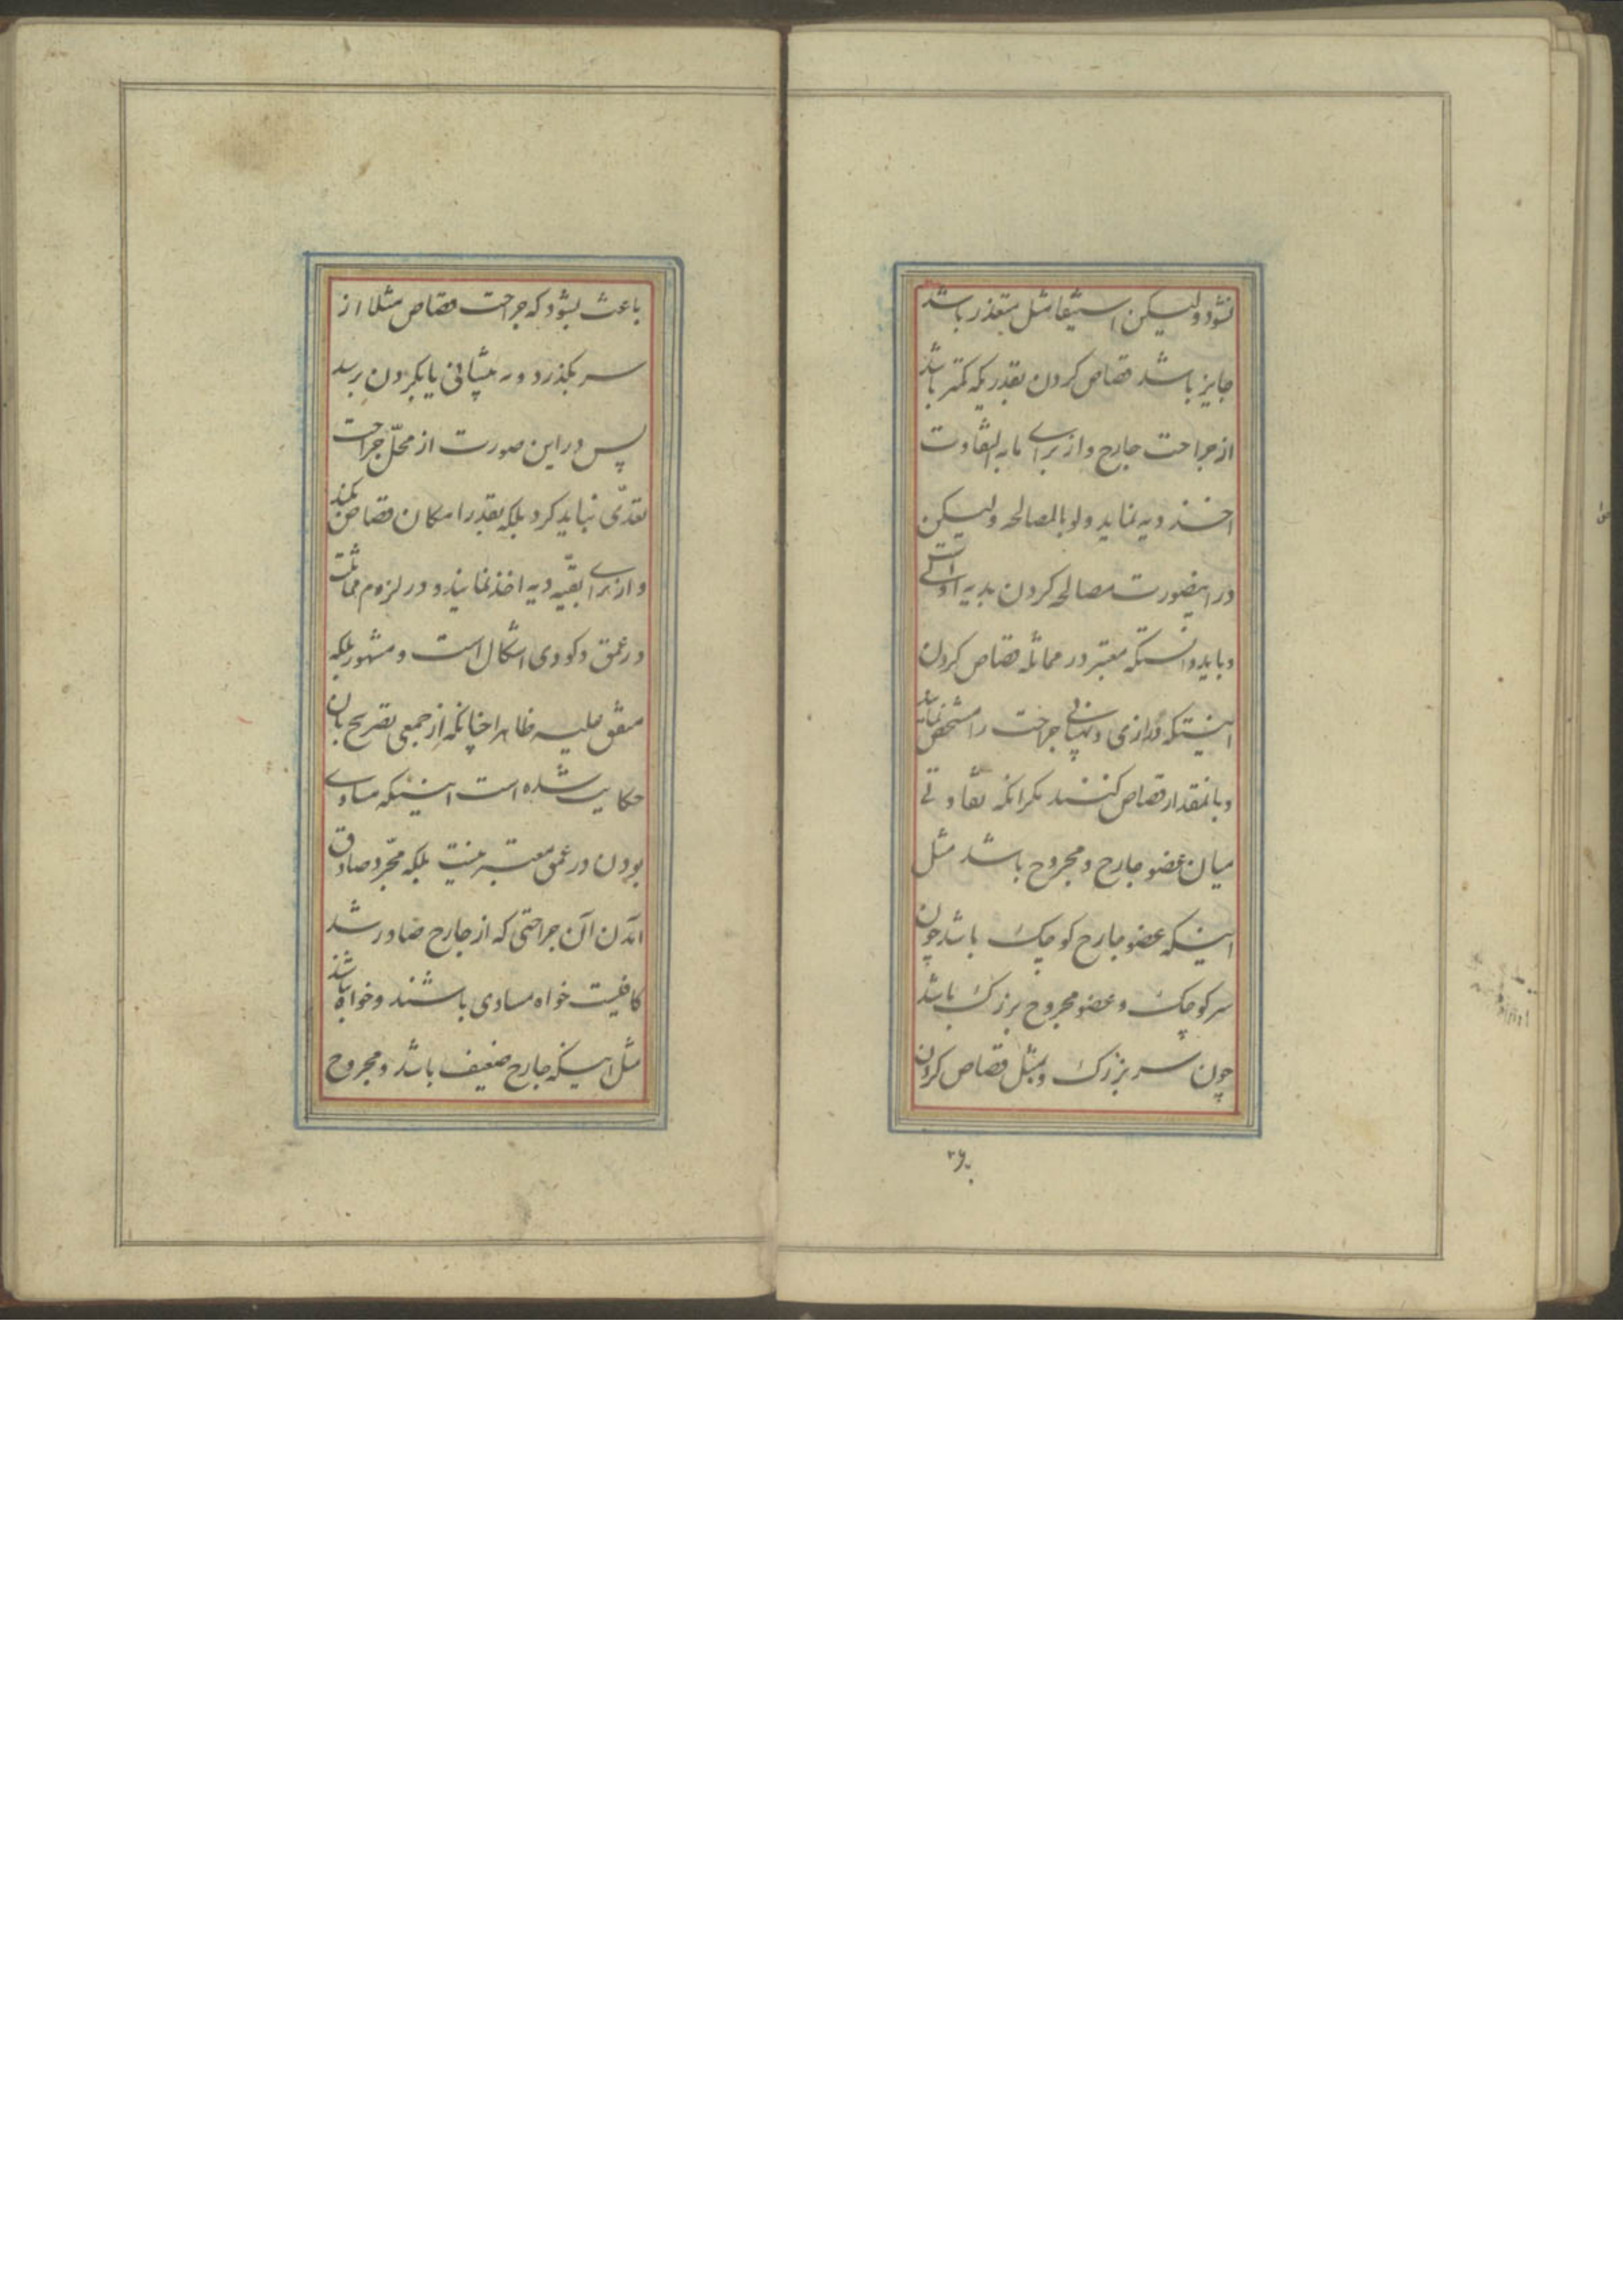 نشود ولیکن استیفا مثل متعذر باشد
جایز باشد قصاص کردن بقدریکه کمتر باشد
از جراحت جارح و از برای مابه التفاوت
اخذ دیه نماید ولو بالمصالحه ولیکن
در اینصورت مصالحه کردن بدیه اولی است
و باید دانستکه معتبر در مماثله قصاص کردن
اینستکه درازی و پهنایی جراحت را مشخص نمایند
و بانمقدار قصاص کنند مکر انکه تفاوتی
میان عضو جارح و مجروح باشد مثل
اینکه عضو جارح کوچک باشد چون
سر کوچک و عضو مجروح بزرک باشد
چون سر بزرک و بمثل قصاص کردن
باعث بشود که جراحت قصاص مثلا از
سر بکذرد و به پیشانی یا بکردن برسد
پس در این صورت از محلّ جراحت
تعدّی نباید کرد بلکه بقدر امکان قصاص کنند
و از برای بقیّه دیه اخذ نمایند و در لزوم مماثلت
در عمق و کودی اشکال است و مشهور بلکه
متفق علیه ظاهرا چنانکه از جمعی تصریح بان
حکایت شده است اینستکه مساوی
بودن در عمق معتبر نیست بلکه مجّرد صادق
امدن آن جراحتی که از جارح صادر شد
کافیست خواه مساوی باشند و خواه نباشند
مثل اینکه جارح ضعیف باشد و مجروح